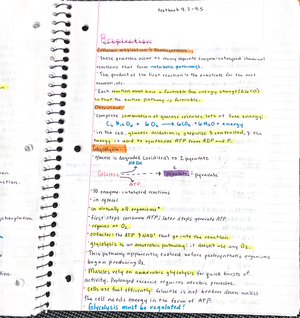 Textbook 9.1-9.5
Respiration
Cellular respiration & Photosynthesis
· These processes occur as many separate enzyme-catalyzed chemical
reactions that form metabolic pathways.
· The product of the first reaction is the substrate for the next
reaction, etc.
· Each reaction must have a favorable free energy change (ΔG<0)
so that the entire pathway is favorable.
Overview:
· Complete combustion of glucose releases lots of free energy:
C6H12O6 + 6O2 → 6CO2 + 6H2O + energy
· in the cell, glucose oxidation is stepwise & controlled, & the
energy is used to synthesize ATP from ADP and Pi
Glycolysis:
· glucose is degraded (oxidized) to 2 pyruvate
NADH
Glucose
2 pyruvate
ATP
· 10 enzyme-catalyzed reactions
· in cytosol
· in virtually all organisms*
· first steps consume ATP; later steps generate ATP.
· requires no O2
· cofactors like ATP & NAD+ that go into the reaction
· glycolysis is an anaerobic pathway; it doesn't use any O2.
This pathway apparently existed before photosynthetic organisms
began producing O2
· Muscles rely on anaerobic glycolysis for quick bursts of
activity. Prolonged exercise requires aerobic processes.
· Cells use fuel efficiently: Glucose is not broken down unless
the cell needs energy in the form of ATP.
Glycolysis must be regulated!